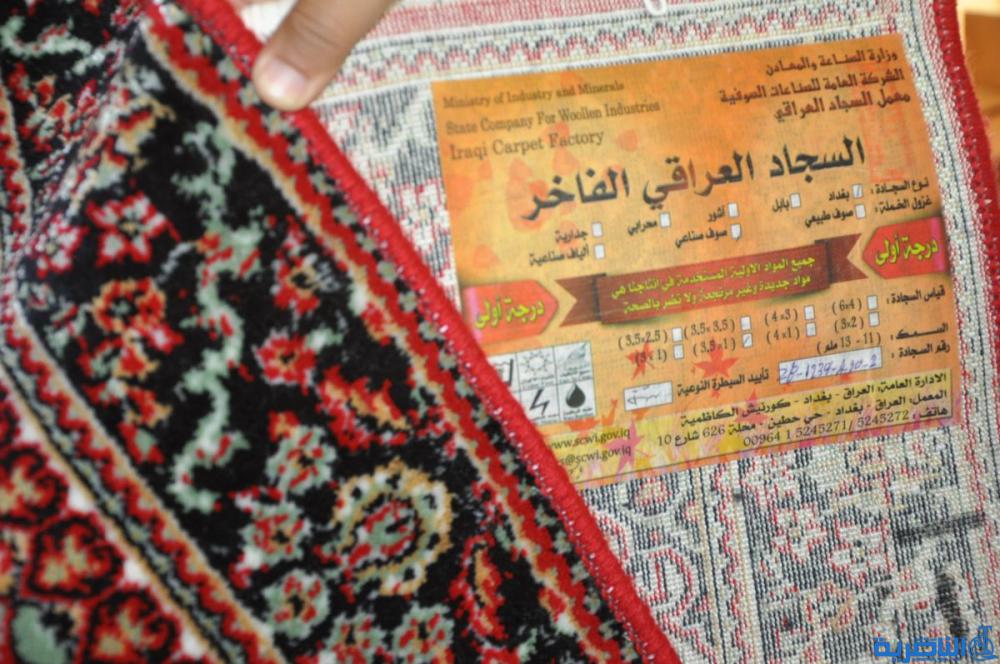 وزارة الصناعة والمعادن
الشركة العامة للصناعات الصوفية
معمل السجاد العراقي
Ministry of Industry and Minerals
State Company For Woollen Industries
Iraqi Carpet Factory
السجاد العراقي الفاخر
نوع السجادة : بغداد بابل آشور محرابي جدارية
غزول الخملة : صوف طبيعي صوف صناعي ألياف صناعية
درجة أولى
جميع المواد الاولية المستخدمة في انتاجنا هي
مواد جديدة وغير مرتجعة ولا تضر بالصحة
درجة أولى
قياس السجادة : (6x4) (4x3) (3,5x3,5) (3,5x2,5)
(3x2) (4x1) (3,5x1) (3x1)
السمك : (11 - 13 ملم)
رقم السجادة :
تأييد السيطرة النوعية
الادارة العامة: العراق - بغداد - كورنيش الكاظمية
المعمل: العراق - بغداد - حي حطين - محلة 626 شارع 10
هاتف : 5245272 /5245271 1 00964
www.scwi.gov.iq
@scwi.gov.iq
الناصرية